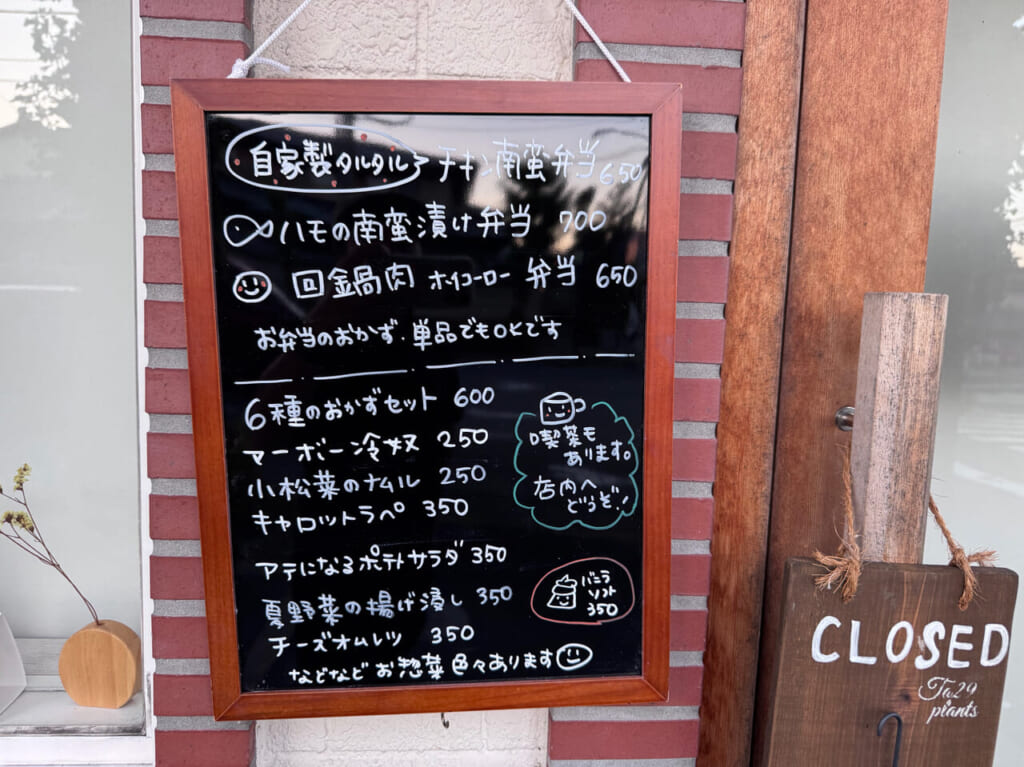 自家製タルタル チキン南蛮弁当 650
ハモの南蛮漬け弁当 700
回鍋肉 ホイコーロー 弁当 650
お弁当のおかず.単品でもOKです
6種のおかずセット 600
マーボー冷奴 250
小松菜のナムル 250
キャロットラペ 350
アテになるポテトサラダ 350
夏野菜の揚げ浸し 350
チーズオムレツ 350
などなど お惣菜色々あります
喫茶も
あります。
店内へ
どうぞ!
バニラ
ソフト
350
CLOSED
Ta29
plants